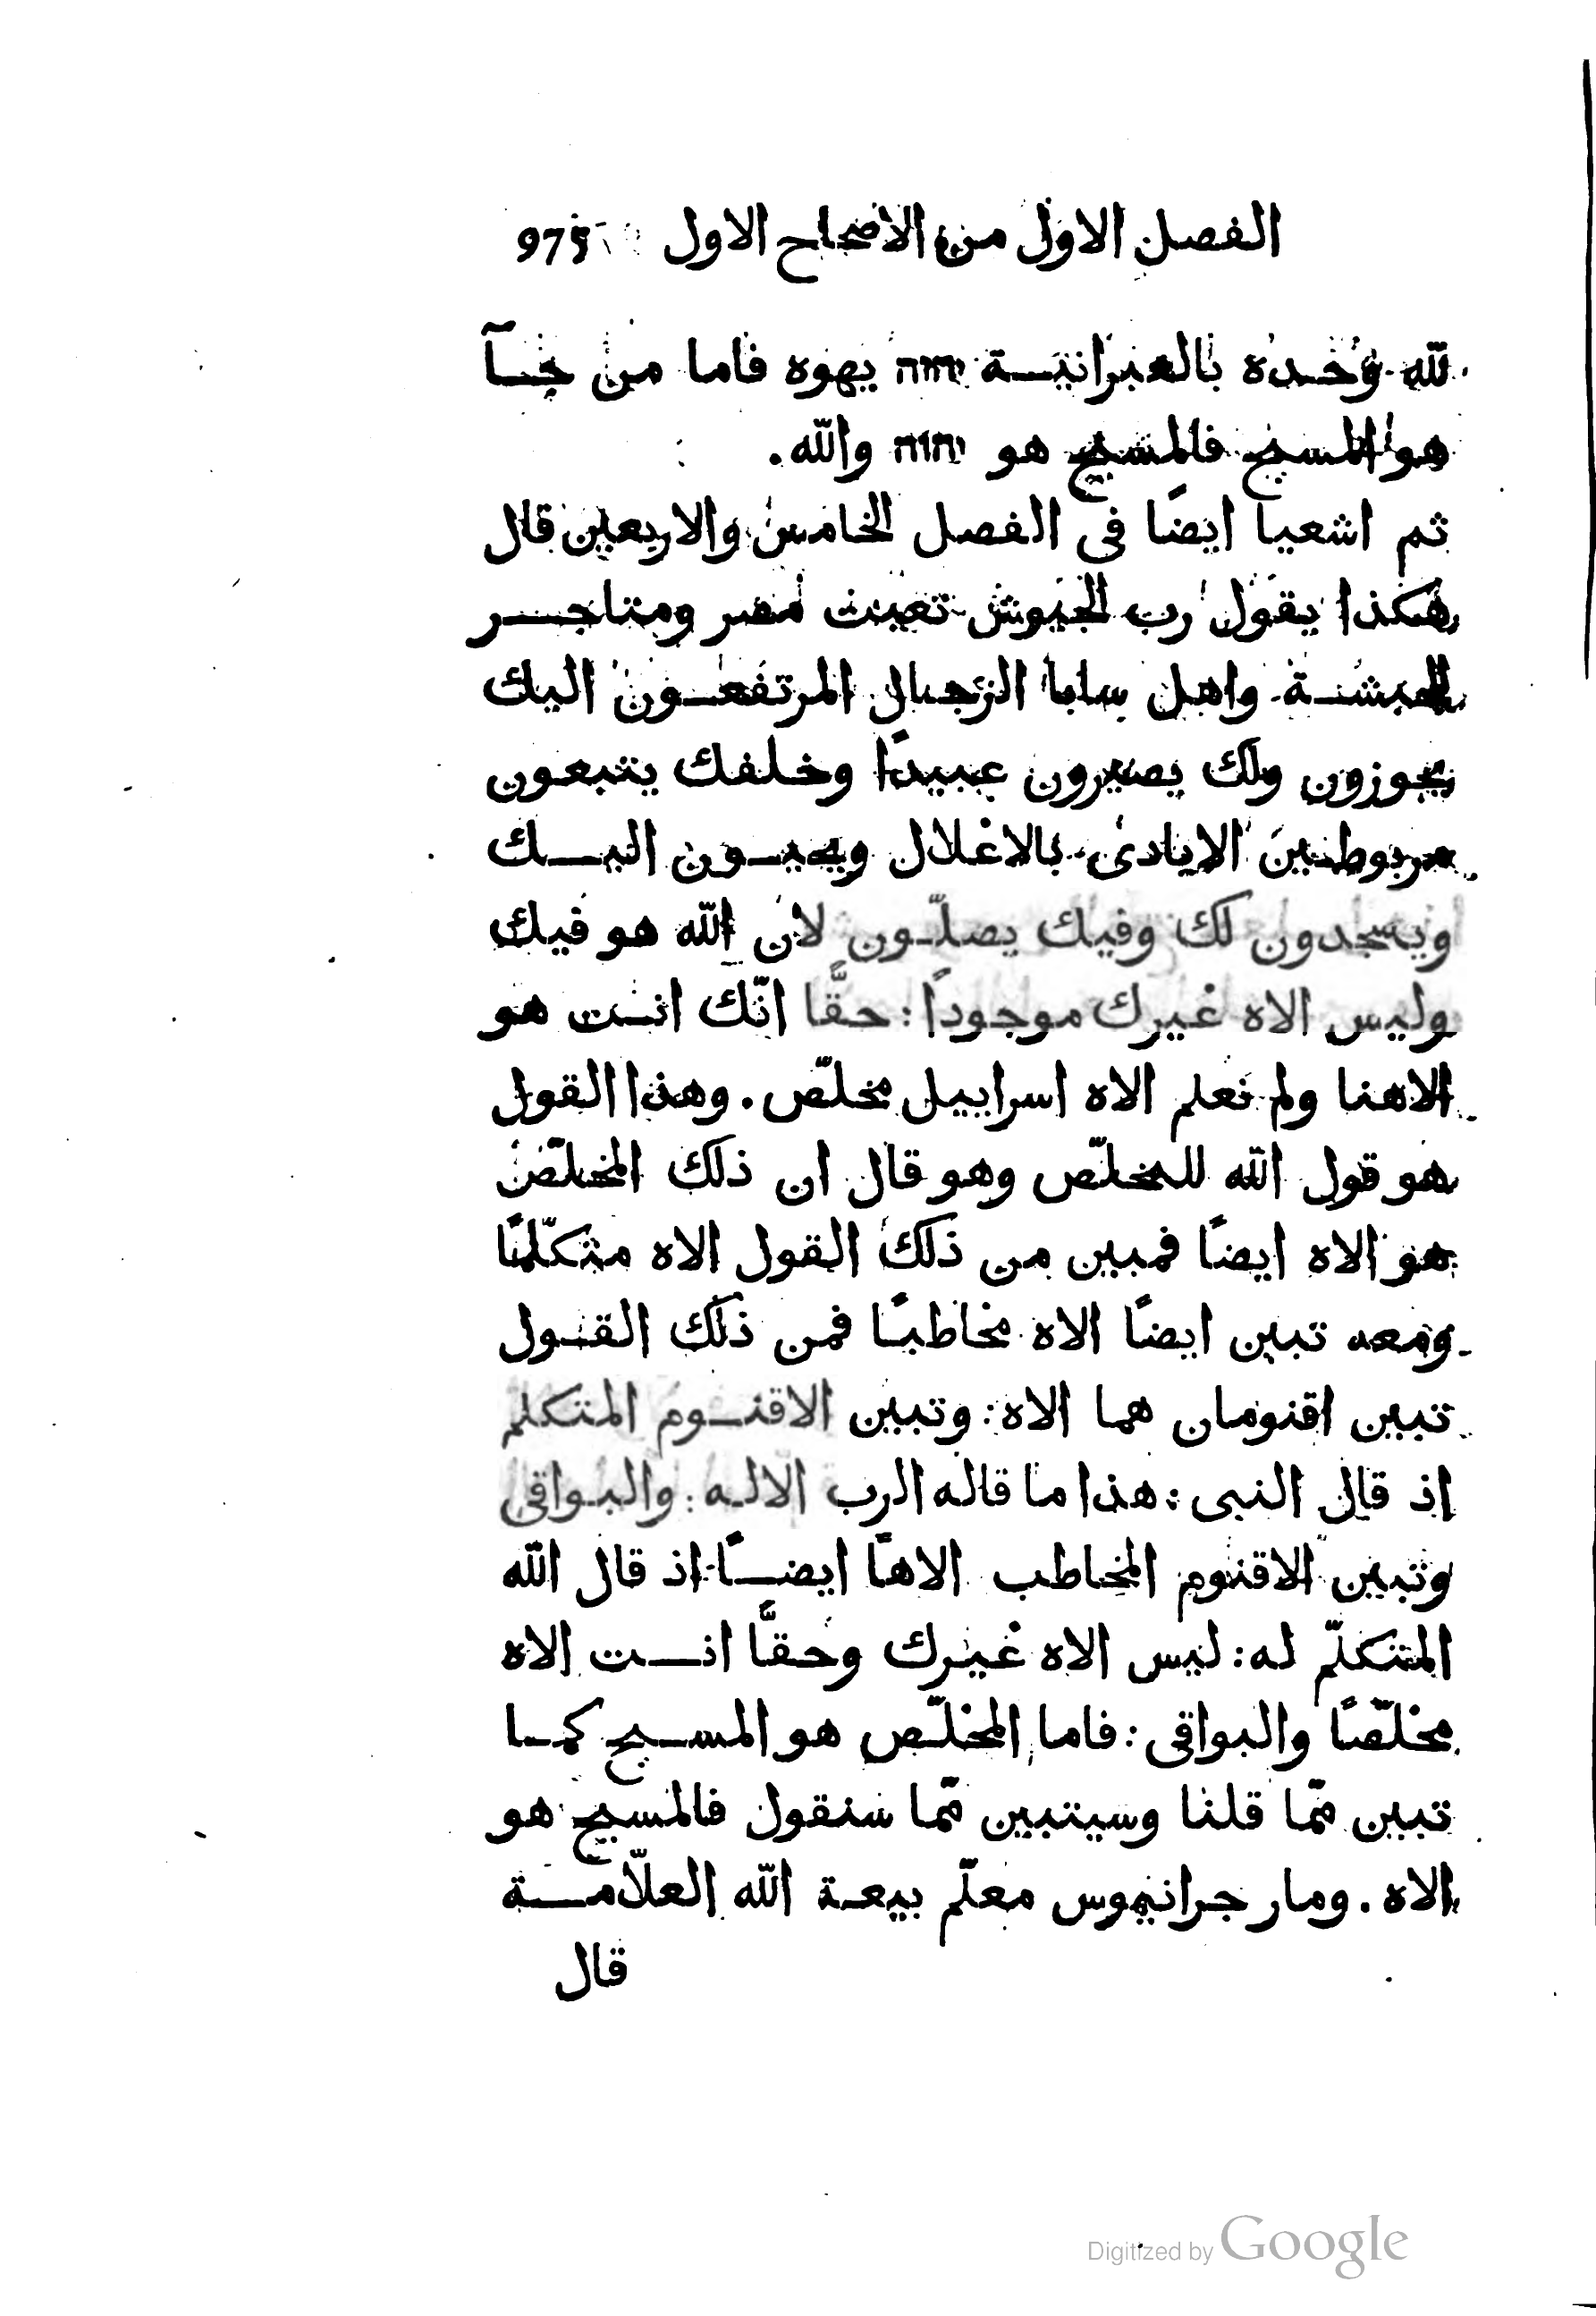 الفصل الاول من الاصحاح الاول 975
لله وحده بالعبرانيـة יהוה يهوه فاما من جـآ
هو المسيح فالمسيح هو יהוה والله.
ثم اشعيا ايضًا فى الفصل الخامس والاربعين قال
هكذا يقول رب الجيوش تعبت مصر ومتاجـر
الحبشـة واهل سابا الرجال المرتفعـون اليك
يجوزون ولك يصيرون عبيدًا وخلفك يتبعون
مربوطين الايادى بالاغلال ويجيـون اليـك
ويسجدون لك وفيك يصلّـون لان الله هو فيك
وليس الاه غيرك موجودًا: حقًّا انّك انـت هو
الاهنا ولم نعلم الاه اسراييل مخلّص. وهذا القول
هو قول الله للمخلّص وهو قال ان ذلك المخلّص
هو الاه ايضًا فمبين من ذلك القول الاه متكلّمًا
ومعه تبين ايضًا الاه مخاطبًـا فمن ذلك القـول
تبين اقنومان هما الاه: وتبين الاقنـوم المتكلم
اذ قال النبى: هذا ما قاله الرب الالـه: والبـواقى
وتبين الاقنوم المخاطب الاهًا ايضـًا اذ قال الله
المتكلّم له: ليس الاه غيرك وحقًّا انـت الاه
مخلّصًا والبواقى: فاما المخلّـص هو المسـيح كمـا
تبين ممّا قلنا وسيتبين ممّا سنقول فالمسيح هو
الاه. ومار جرانيموس معلّم بيعـة الله العلّامـة
قال
Digitized by Google